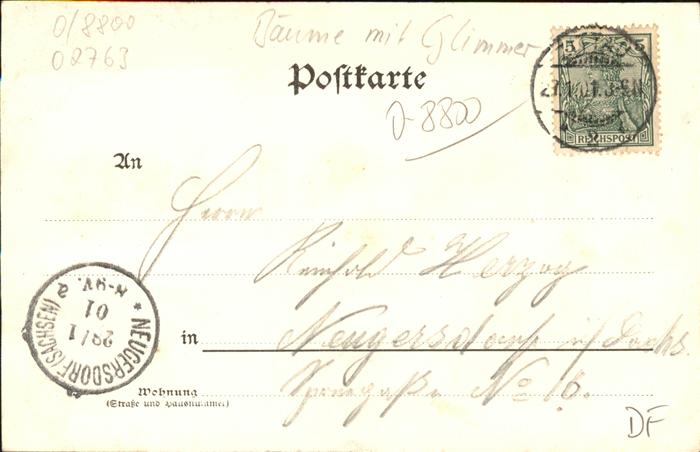 0/8800
02763
Bäume mit Glimmer
Postkarte
0-8800
5 5
REICHSPOST
An
Herrn
Reinhold Herzog
in Neugersdorf i/Sachs.
No 16.
Wohnung
(Straße und Hausnummer)
* NEUGERSDORF (SACHSEN)
28/1
01
8-9V.
DF